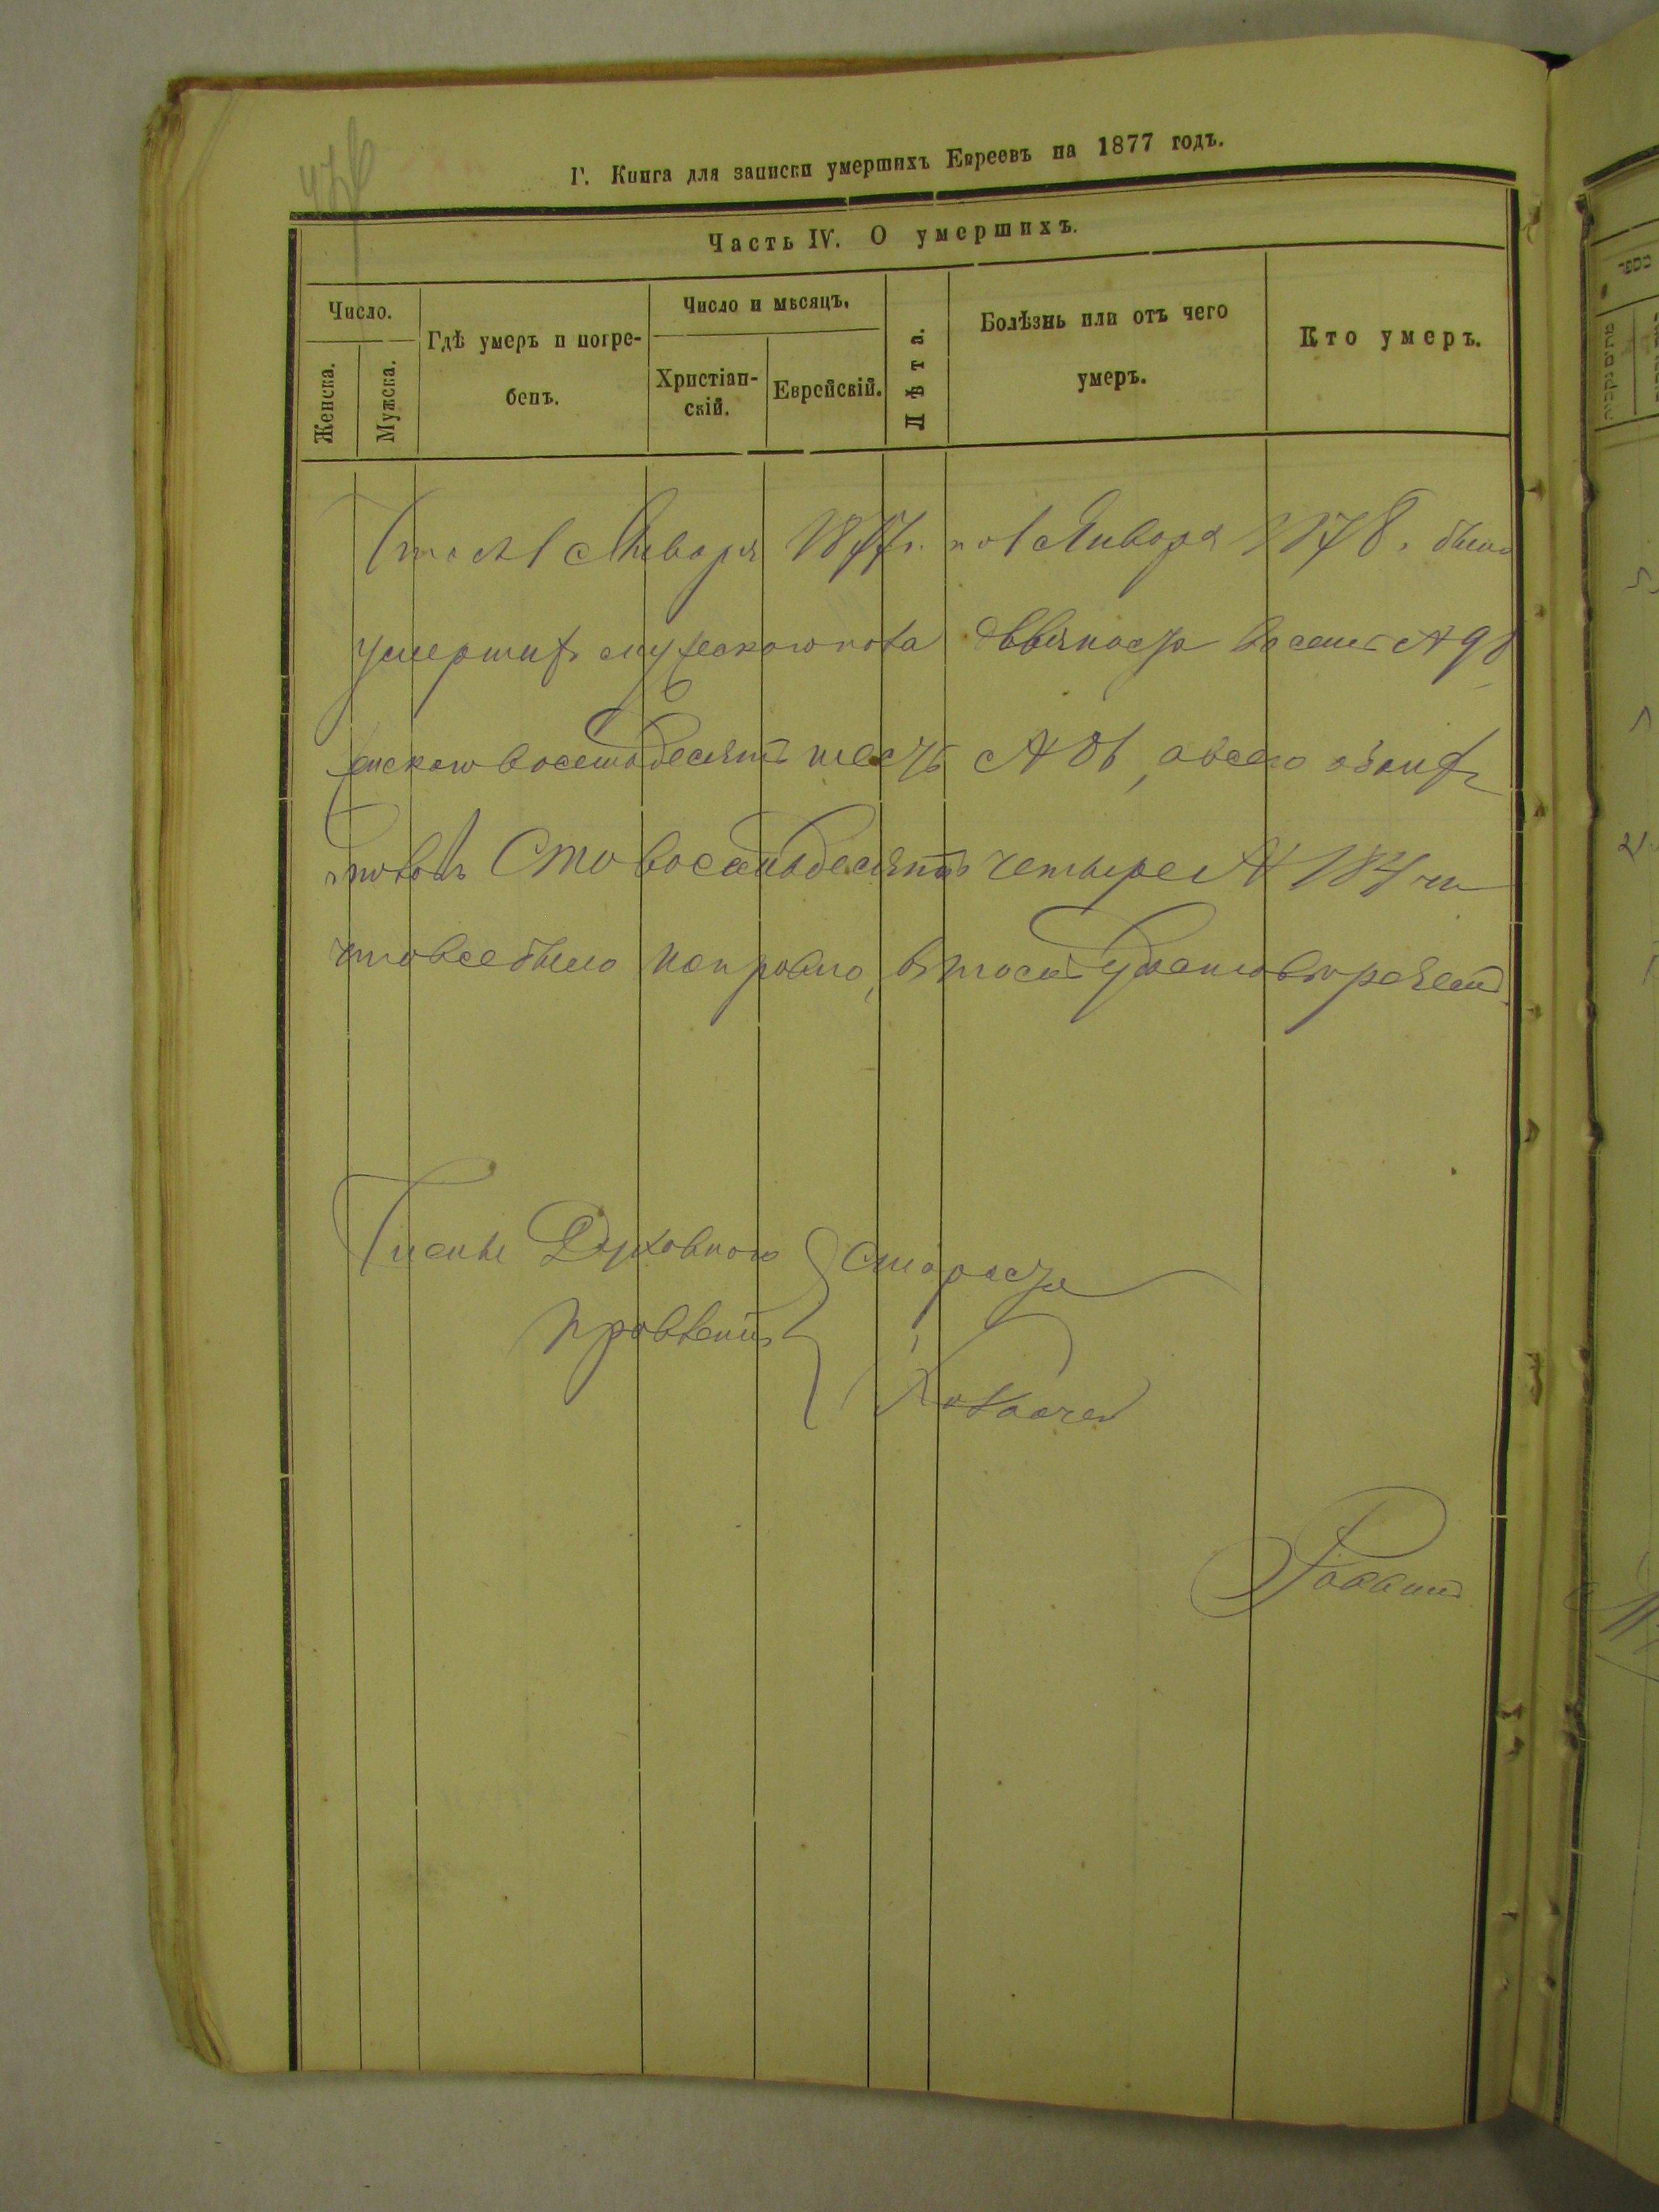 Г. Книга для записки умершихъ Евреевъ на 1877 годъ.
Часть IV. О умершихъ.
Число.
Женска.
Мужска.
Гдѣ умеръ и погре-
бенъ.
Число и мѣсяцъ.
Христіан-
скій.
Еврейскій.
Лѣта.
Болѣзнь или отъ чего
умеръ.
Кто умеръ.
1 Января 1877 г. по 1 Января 1878 г. было
умершихъ мужескаго пола девяносто восемь № 98
женскаго восемьдесятъ шесть № 86, а всего обоихъ
половъ Сто восемьдесятъ четыре № 184
что все было въ томъ удостовѣряемъ
Члены Духовнаго
Правленія
Староста
Казначей
Раввинъ